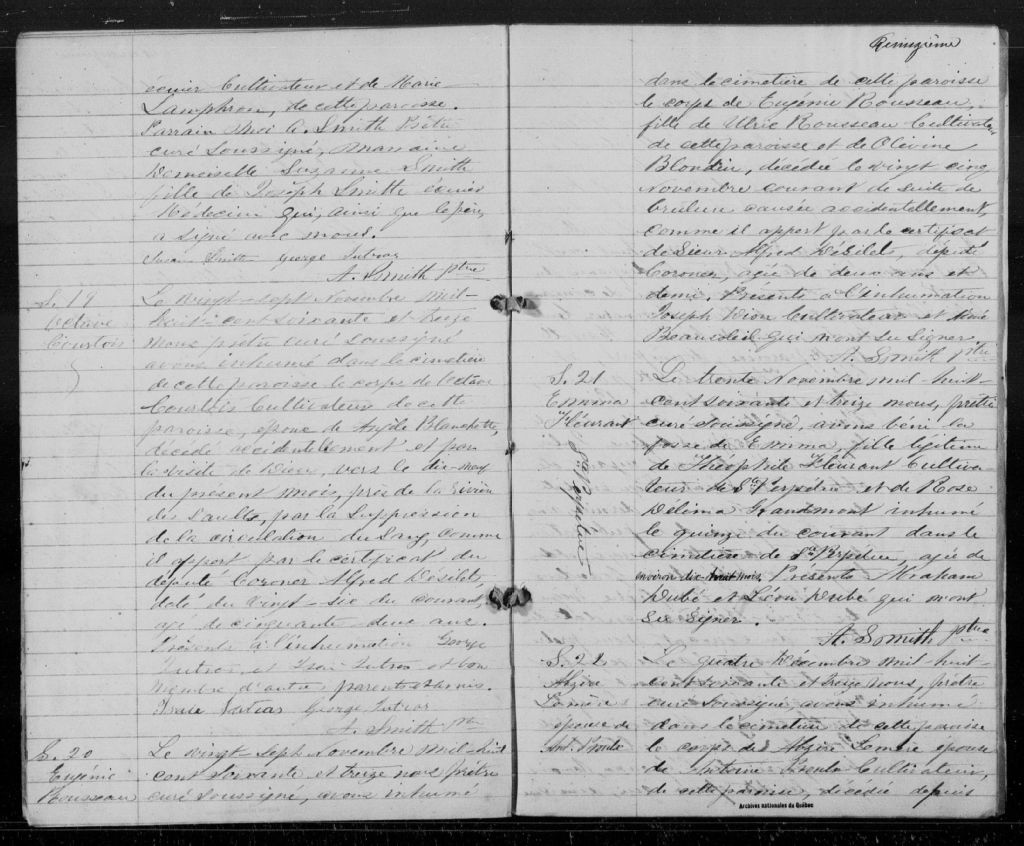 écuier Cultivateur et de Marie
Lamphron, de cette paroisse.
Parrain moi A. Smith Prêtre
curé Soussigné, marraine
Demoiselle Suzanne Smith
fille de Joseph Smith écuier
Médecin qui, ainsi que le père
a signé avec nous.
Susan Smith George Lutras
A. Smith ptre
S. 19
Octave
Courtois
Le vingt-sept Novembre mil-
huit-cent soixante et treize
nous prêtre curé soussigné
avons inhumé dans le cimetière
de cette paroisse le corps de Octave
Courtois Cultivateur de cette
paroisse, époux de Blanchette,
décédé accidentellement et par
la visite de Dieu, vers le dix-neuf
du présent mois, près de la rivière
des Saults, par la Suppression
de la circulation du Sang comme
il appert par le certificat du
député Coroner Alfred Désilets,
daté du vingt-six du courant,
agé de cinquante-deux ans.
Présents à l'inhumation George
Lutras, et Lutras et bon
nombre d'autres parents et amis.
George Lutras
A. Smith ptre
S. 20
Eugénie
Rousseau
Le vingt-sept Novembre mil-huit
cent soixante et treize nous prêtre
curé soussigné, avons inhumé
dans le cimetière de cette paroisse
le corps de Eugénie Rousseau,
fille de Ulric Rousseau Cultivateur
de cette paroisse et de Olévine
Blondin, décédée le vingt cinq
Novembre courant de suite de
brulure causée accidentellement,
comme il appert par le certificat
de Sieur Alfred Désilets, député
Coroner, agée de deux ans et
demi. Présents à l'inhumation
Joseph Dion Cultivateur et
Beausoleil qui n'ont su Signer.
A. Smith ptre
S. 21
Emma
Fleurant
Ste Perpétue
Le trente Novembre mil huit-
cent soixante et treize nous, prêtre
curé soussigné, avons béni la
fosse de Emma, fille légitime
de Théophile Fleurant Cultiva-
teur de Ste Perpétue et de Rose
Délima Grandmont inhumé
le quinze du courant dans le
cimetière de Ste Perpétue, agée de
environ dix-huit mois. Présents Abraham
Dubé et Léon Dubé qui n'ont
su signer.
A. Smith ptre
S. 22
épouse de
Le quatre Décembre mil-huit-
cent soixante et treize nous, prêtre
curé soussigné, avons inhumé
dans le cimetière de cette paroisse
le corps de épouse
de Antoine Cultivateur,
de cette paroisse, décédée depuis
Archives nationales du Québec